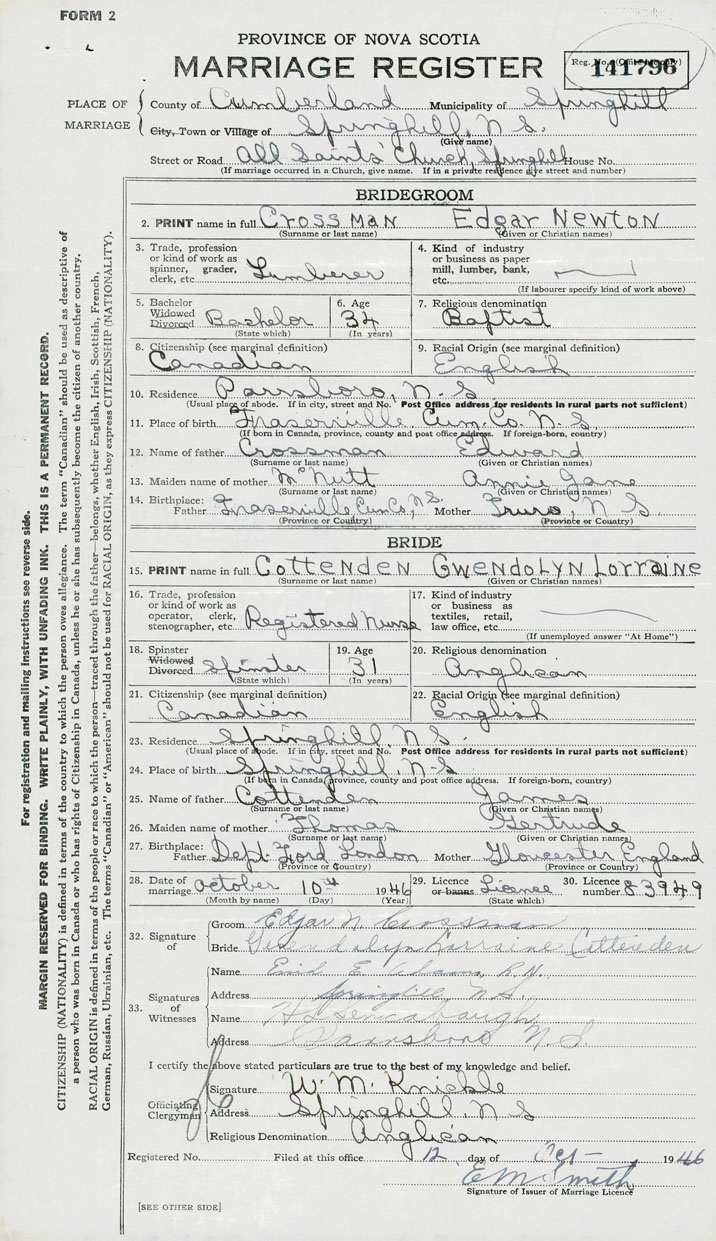 FORM 2
PROVINCE OF NOVA SCOTIA
MARRIAGE REGISTER
Reg. No. (Office use only)
141796
PLACE OF MARRIAGE
County of Cumberland Municipality of Springhill
City, Town or Village of Springhill, N S.
(Give name)
Street or Road All Saints' Church, Springhill House No.
(If marriage occurred in a Church, give name. If in a private residence give street and number)
BRIDEGROOM
2. PRINT name in full Crossman Edgar Newton
(Surname or last name) (Given or Christian names)
3. Trade, profession or kind of work as spinner, grader, clerk, etc. Lumberer
4. Kind of industry or business as paper mill, lumber, bank, etc.
(If labourer specify kind of work above)
5. Bachelor Widowed Divorced Bachelor
(State which)
6. Age 34
(In years)
7. Religious denomination
Baptist
8. Citizenship (see marginal definition)
Canadian
9. Racial Origin (see marginal definition)
English
10. Residence Parrsboro, N. S
(Usual place of abode. If in city, street and No. Post Office address for residents in rural parts not sufficient)
11. Place of birth Fraserville Cum. Co. N. S.
(If born in Canada, province, county and post office address. If foreign-born, country)
12. Name of father Crossman Edward
(Surname or last name) (Given or Christian names)
13. Maiden name of mother McNutt Annie Jane
(Surname or last name) (Given or Christian names)
14. Birthplace: Father Fraserville Cum Co, N.S. Mother Truro, N S.
(Province or Country) (Province or Country)
BRIDE
15. PRINT name in full Cottenden Gwendolyn Lorraine
(Surname or last name) (Given or Christian names)
16. Trade, profession or kind of work as operator, clerk, stenographer, etc. Registered Nurse
17. Kind of industry or business as textiles, retail, law office, etc.
(If unemployed answer "At Home")
18. Spinster Widowed Divorced Spinster
(State which)
19. Age 31
(In years)
20. Religious denomination
Anglican
21. Citizenship (see marginal definition)
Canadian
22. Racial Origin (see marginal definition)
English
23. Residence Springhill, N S.
(Usual place of abode. If in city, street and No. Post Office address for residents in rural parts not sufficient)
24. Place of birth Springhill, N-S
(If born in Canada, province, county and post office address. If foreign-born, country)
25. Name of father Cottenden James
(Surname or last name) (Given or Christian names)
26. Maiden name of mother Thomas Gertrude
(Surname or last name) (Given or Christian names)
27. Birthplace: Father Dept Ford London Mother Gloucester England
(Province or Country) (Province or Country)
28. Date of marriage October 10th 1946
(Month by name) (Day) (Year)
29. Licence or banns Licence
(State which)
30. Licence number 83949
32. Signature of
Groom Edgar N. Crossman
Bride Gwendolyn Lorraine Cottenden
33. Signatures of Witnesses
Name Enid E. Adams R.N.
Address Springhill, N.S.
Name
Address Parrsboro N. S.
I certify the above stated particulars are true to the best of my knowledge and belief.
Officiating Clergyman
Signature W. M. Knickle
Address Springhill, N S
Religious Denomination Anglican
Registered No. Filed at this office 12 day of Oct 1946
E M Smith
Signature of Issuer of Marriage Licence
[SEE OTHER SIDE]
For registration and mailing instructions see reverse side.
MARGIN RESERVED FOR BINDING. WRITE PLAINLY, WITH UNFADING INK. THIS IS A PERMANENT RECORD.
CITIZENSHIP (NATIONALITY) is defined in terms of the country to which the person owes allegiance. The term "Canadian" should be used as descriptive of
a person who was born in Canada or who has rights of Citizenship in Canada, unless he or she has subsequently become the citizen of another country.
RACIAL ORIGIN is defined in terms of the people or race to which the person—traced through the father—belongs, whether English, Irish, Scottish, French,
German, Russian, Ukrainian, etc. The terms "Canadian" or "American" should not be used for RACIAL ORIGIN, as they express CITIZENSHIP (NATIONALITY).